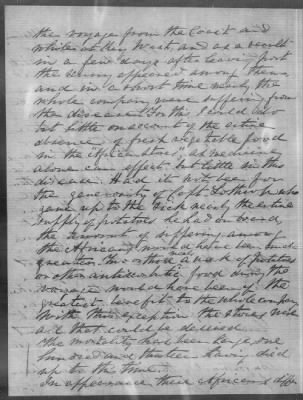 the voyage from the Coast and
whilst at Key West, and as a result
in a few days after leaving port
the scurvy appeared among them
and in a short time nearly the
whole company were suffering from
the disease. For this I could do
but little on account of the entire
absence of fresh vegetable food
in the as medicine
alone can effect but little in this
disease. Had it not been for
the generosity of Capt who
gave up to the sick nearly the entire
supply of potatoes he had on board
the amount of suffering among
the Africans would have been much
greater. two or three weeks of potatoes
or other antiscorbutic food during the
voyage would have been of the
greatest benefit to the whole company
With this exception the stores were
all that could be desired.
The mortality has been large, one
hundred and thirteen having died
up to this time.
In appearance these Africans differ